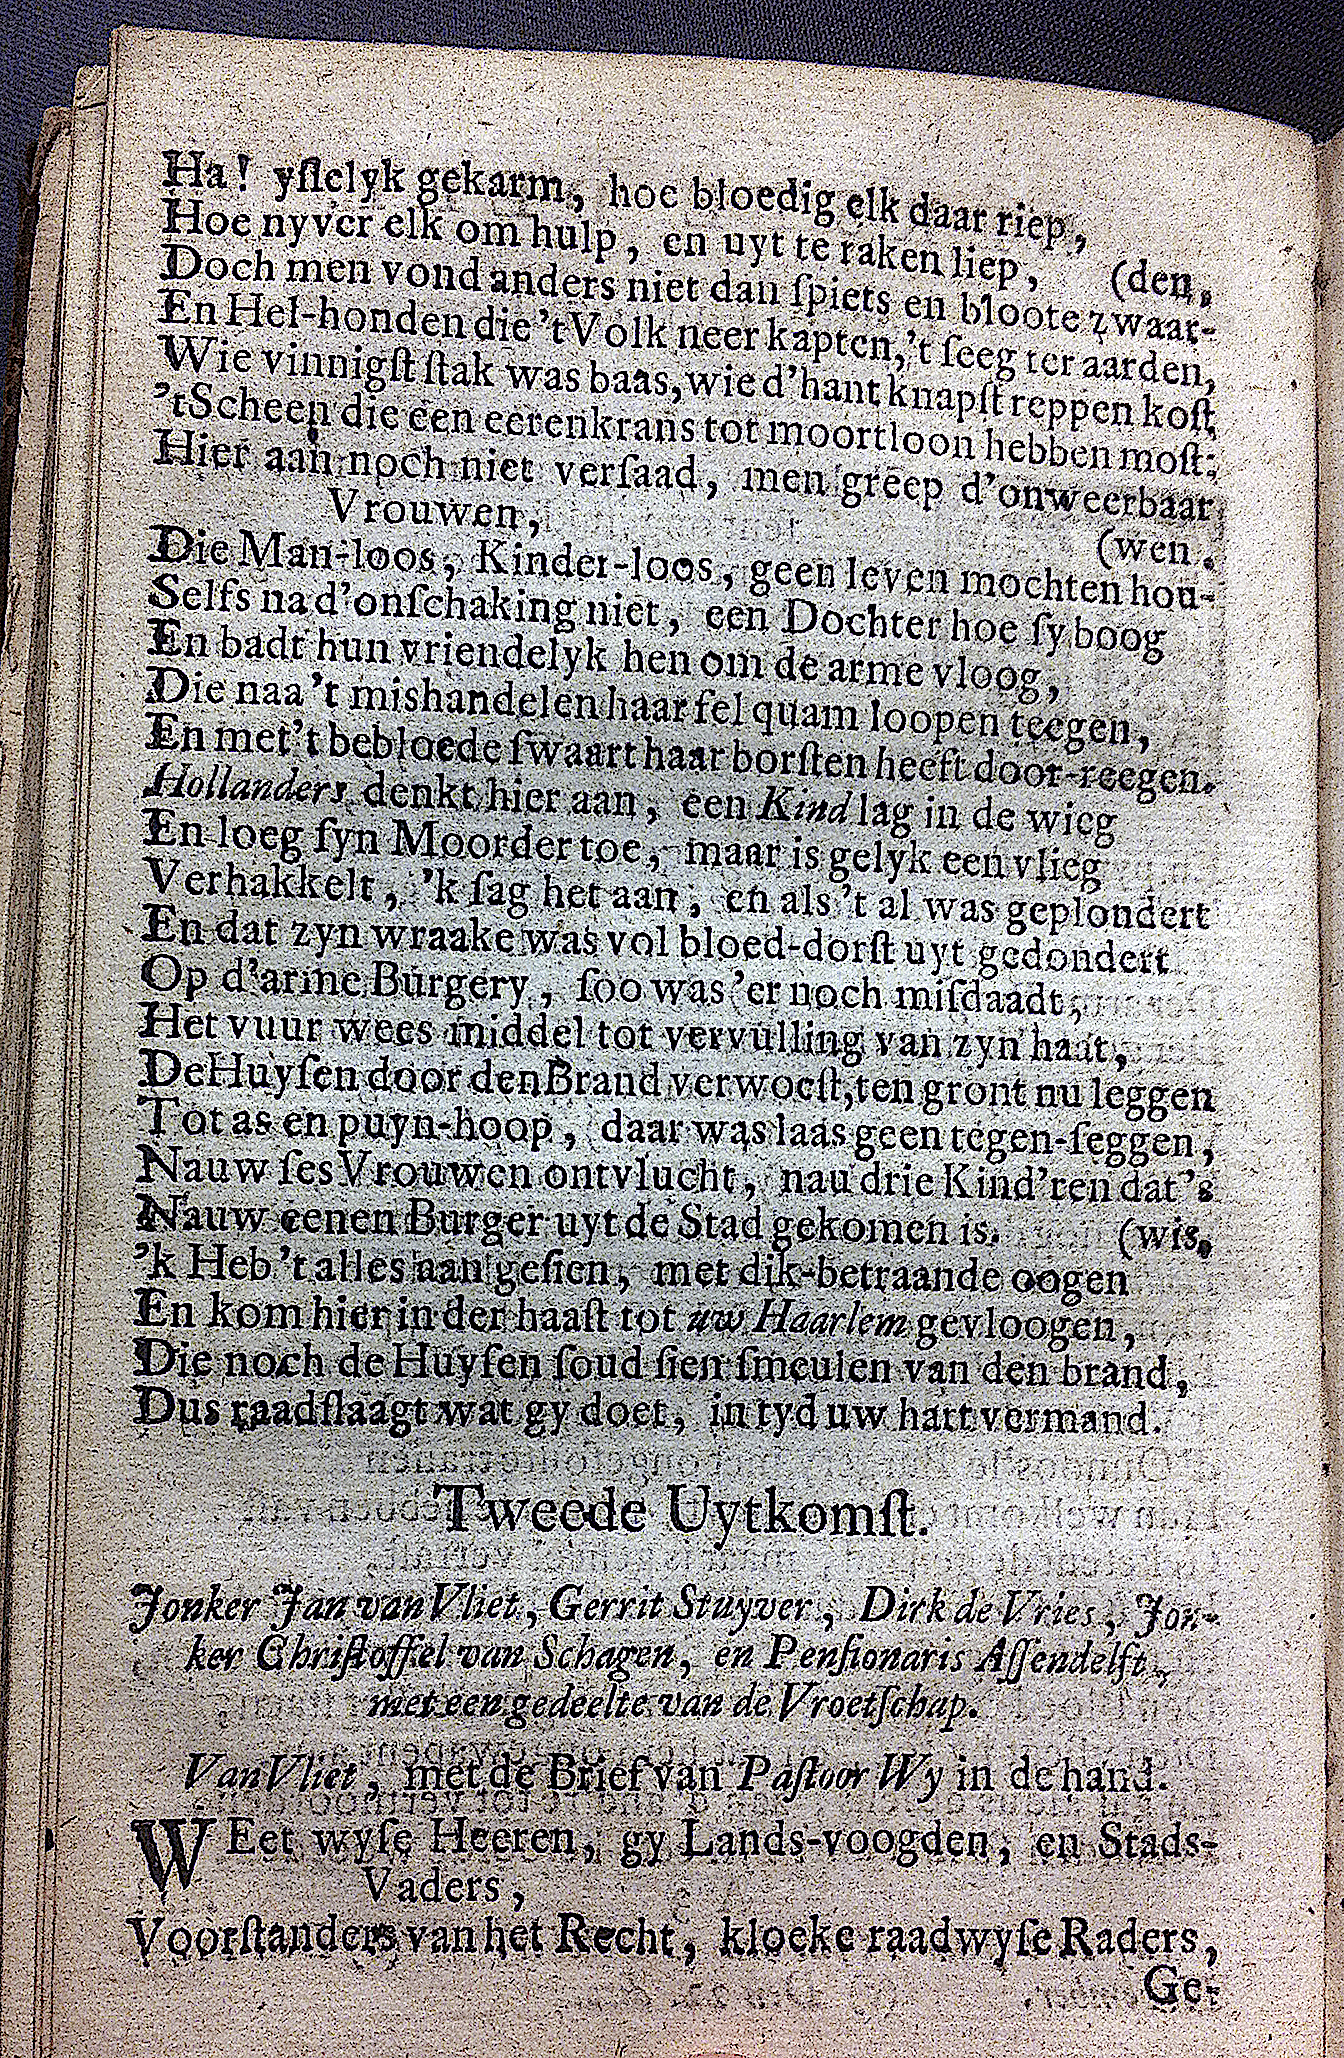 Ha! yſlelyk gekarm, hoe bloedig elk daar riep,
Hoe nyver elk om hulp, en uyt te raken liep,
(den,
Doch men vond anders niet dan ſpiets en bloote zwaar-
En Hel-honden die 't Volk neer kapten, 't ſeeg ter aarden,
Wie vinnigſt ſtak was baas, wie d'hant knapſt reppen koſt,
'tScheen die een eerenkrans tot moortloon hebben moſt;
Hier aan noch niet verſaad, men greep d'onweerbaar
Vrouwen,
(wen.
Die Man-loos, Kinder-loos, geen leven mochten hou-
Selfs na d'onſchaking niet, een Dochter hoe ſy boog
En badt hun vriendelyk hen om de arme vloog,
Die naa 't mishandelen haar fel quam loopen teegen,
En met 't bebloede ſwaart haar borſten heeft door-reegen.
Hollanders denkt hier aan, een Kind lag in de wieg
En loeg ſyn Moorder toe, maar is gelyk een vlieg
Verhakkelt, 'k ſag het aan, en als 't al was geplondert
En dat zyn wraake was vol bloed-dorſt uyt gedondert
Op d'arme Burgery, ſoo was 'er noch miſdaadt,
Het vuur wees middel tot vervulling van zyn haat,
De Huyſen door den Brand verwoeſt, ten gront nu leggen
Tot as en puyn-hoop, daar was laas geen tegen-ſeggen,
Nauw ſes Vrouwen ontvlucht, nau drie Kind'ren dat 's
Nauw eenen Burger uyt de Stad gekomen is.
(wis,
'k Heb 't alles aan geſien, met dik-betraande oogen
En kom hier in der haaſt tot uw Haarlem gevloogen,
Die noch de Huyſen ſoud ſien ſmeulen van den brand,
Dus raadſlaagt wat gy doet, in tyd uw hart vermand.
Tweede Uytkomſt.
Jonker Jan van Vliet, Gerrit Stuyver, Dirk de Vries, Jon-
ker Chriſtoffel van Schagen, en Penſionaris Aſſendelft,
met een gedeelte van de Vroetſchap.
Van Vliet, met de Brief van Paſtoor Wy in de hand.
WEet wyſe Heeren, gy Lands-voogden, en Stads-
Vaders,
Voorſtanders van het Recht, kloeke raadwyſe Raders,
Ge-